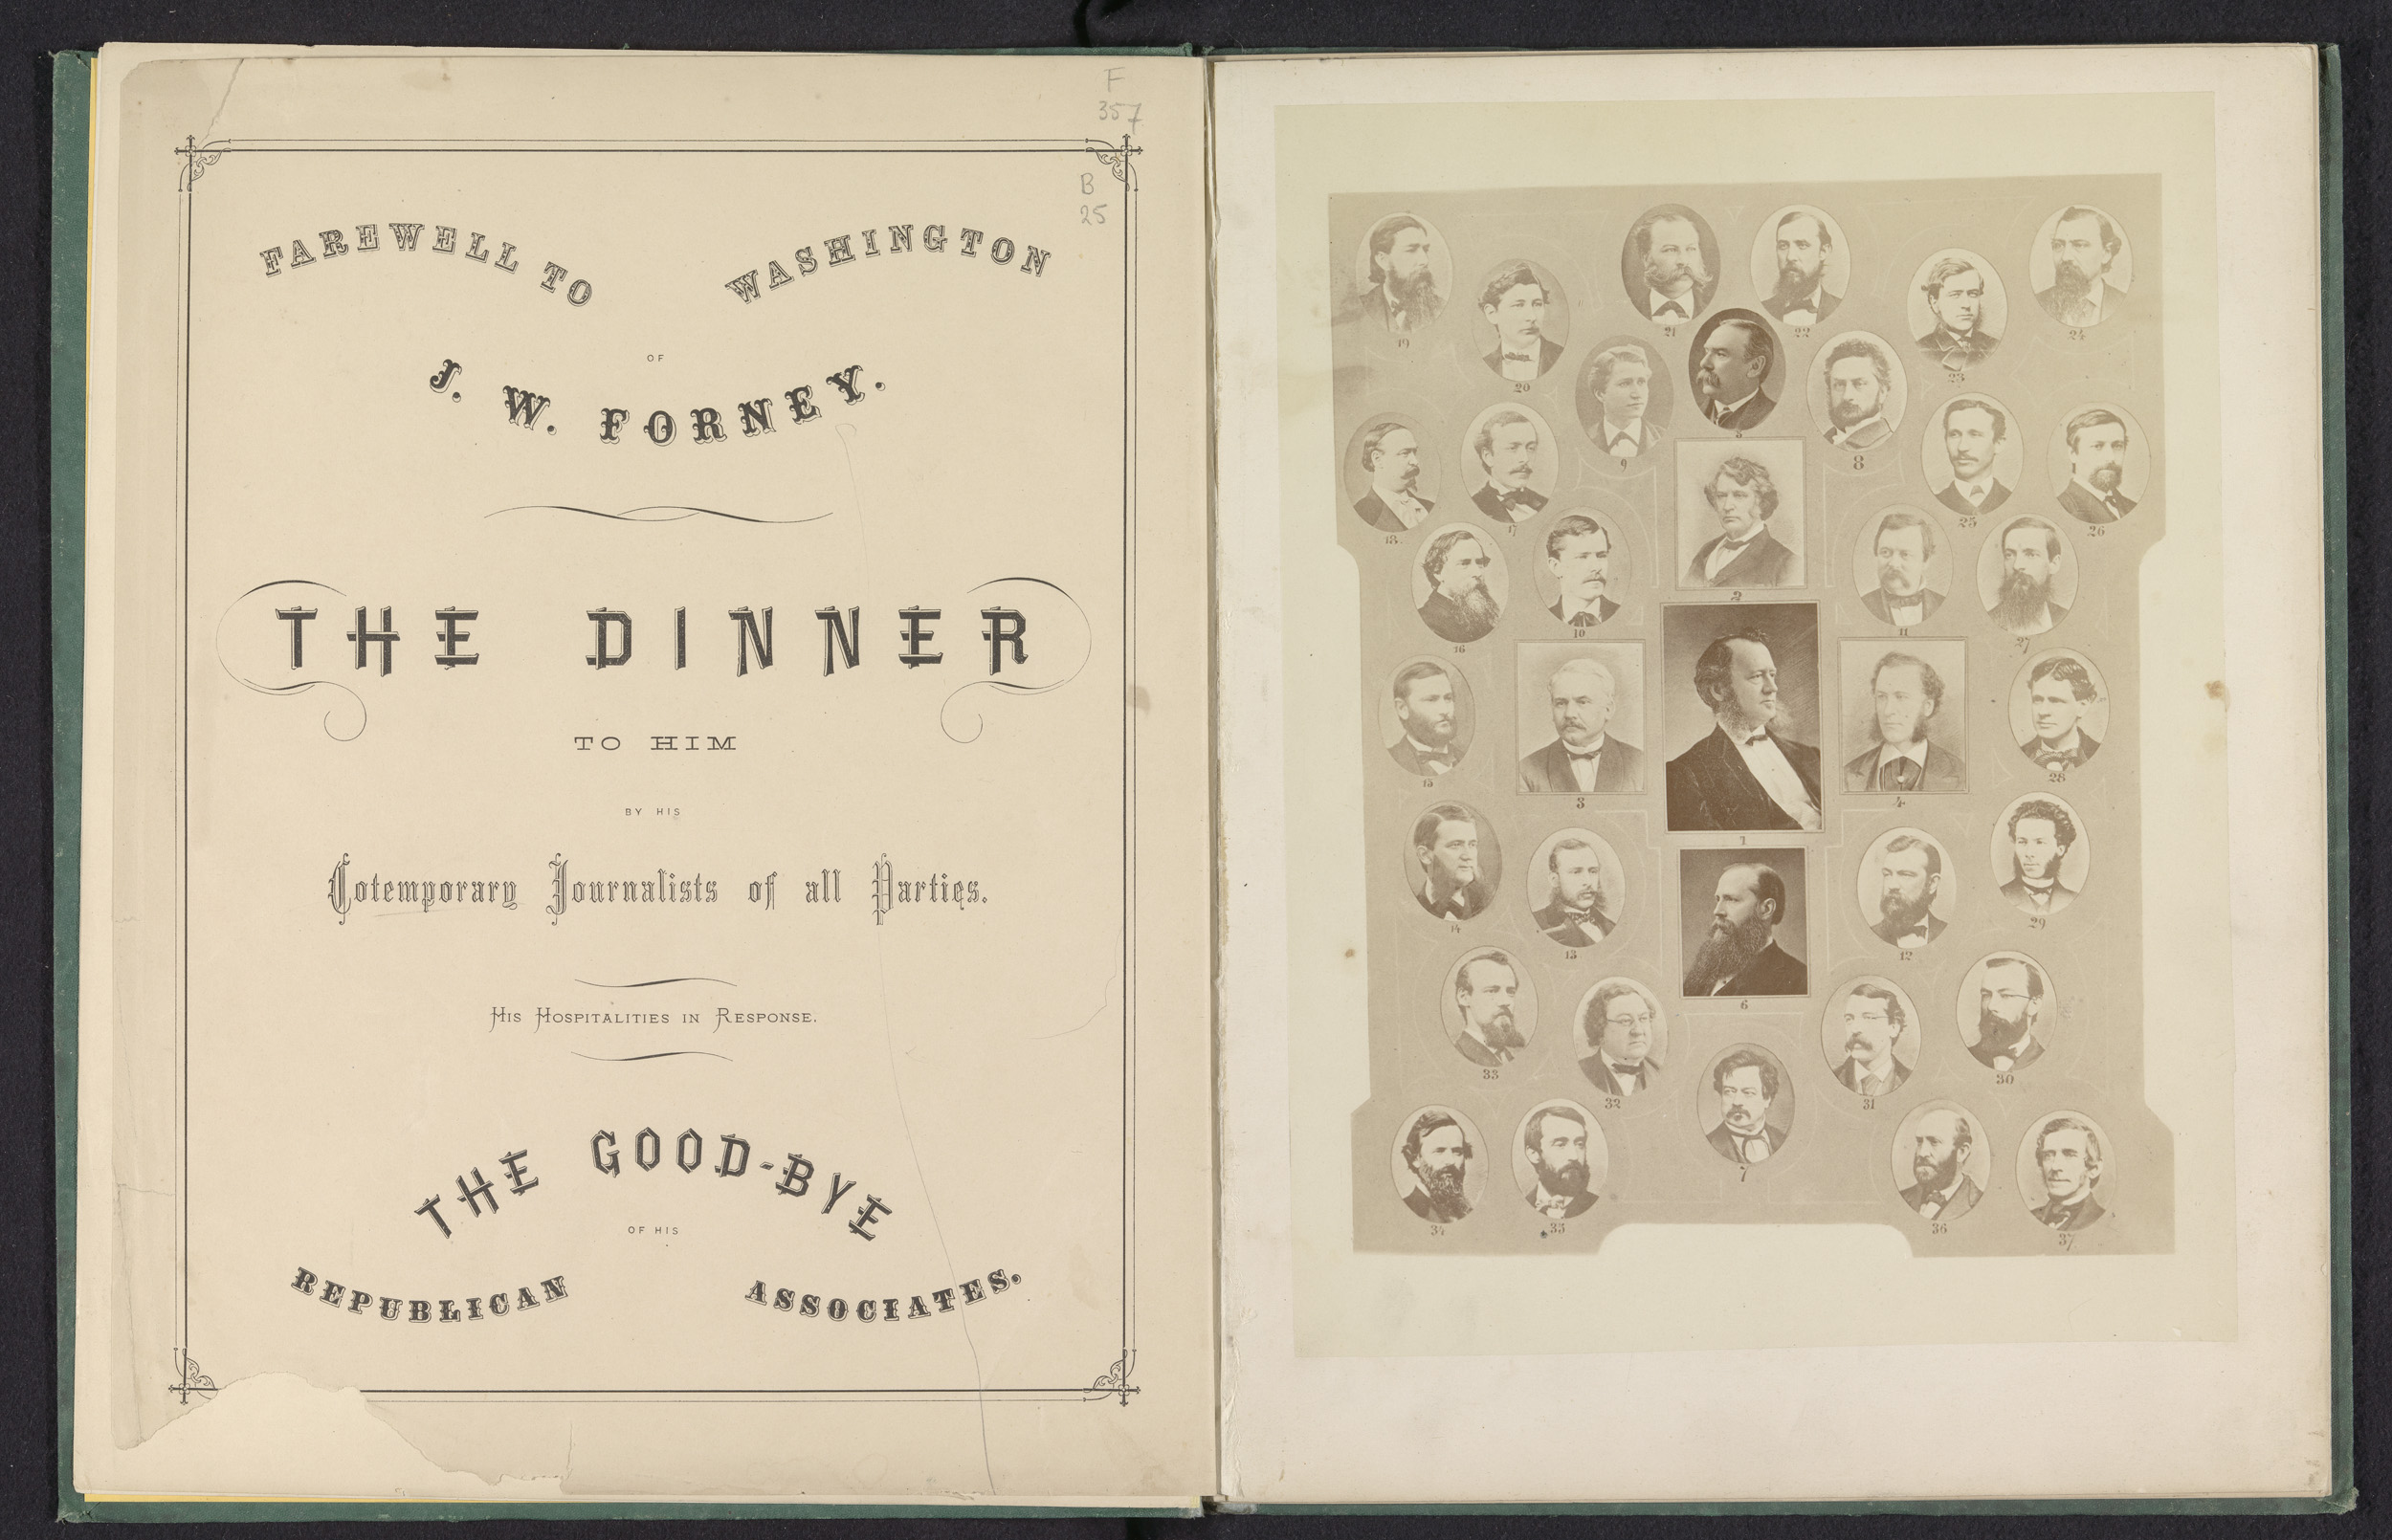 F
357
B
25
FAREWELL TO WASHINGTON
OF
J. W. FORNEY.
THE DINNER
TO HIM
BY HIS
Cotemporary Journalists of all Parties.
HIS HOSPITALITIES IN RESPONSE.
THE GOOD-BYE
OF HIS
REPUBLICAN ASSOCIATES.
19
20
21
22
23
24
9
5
8
18
17
25
26
16
10
2
11
27
15
3
1
4
28
14
13
6
12
29
33
32
7
31
30
34
35
36
37